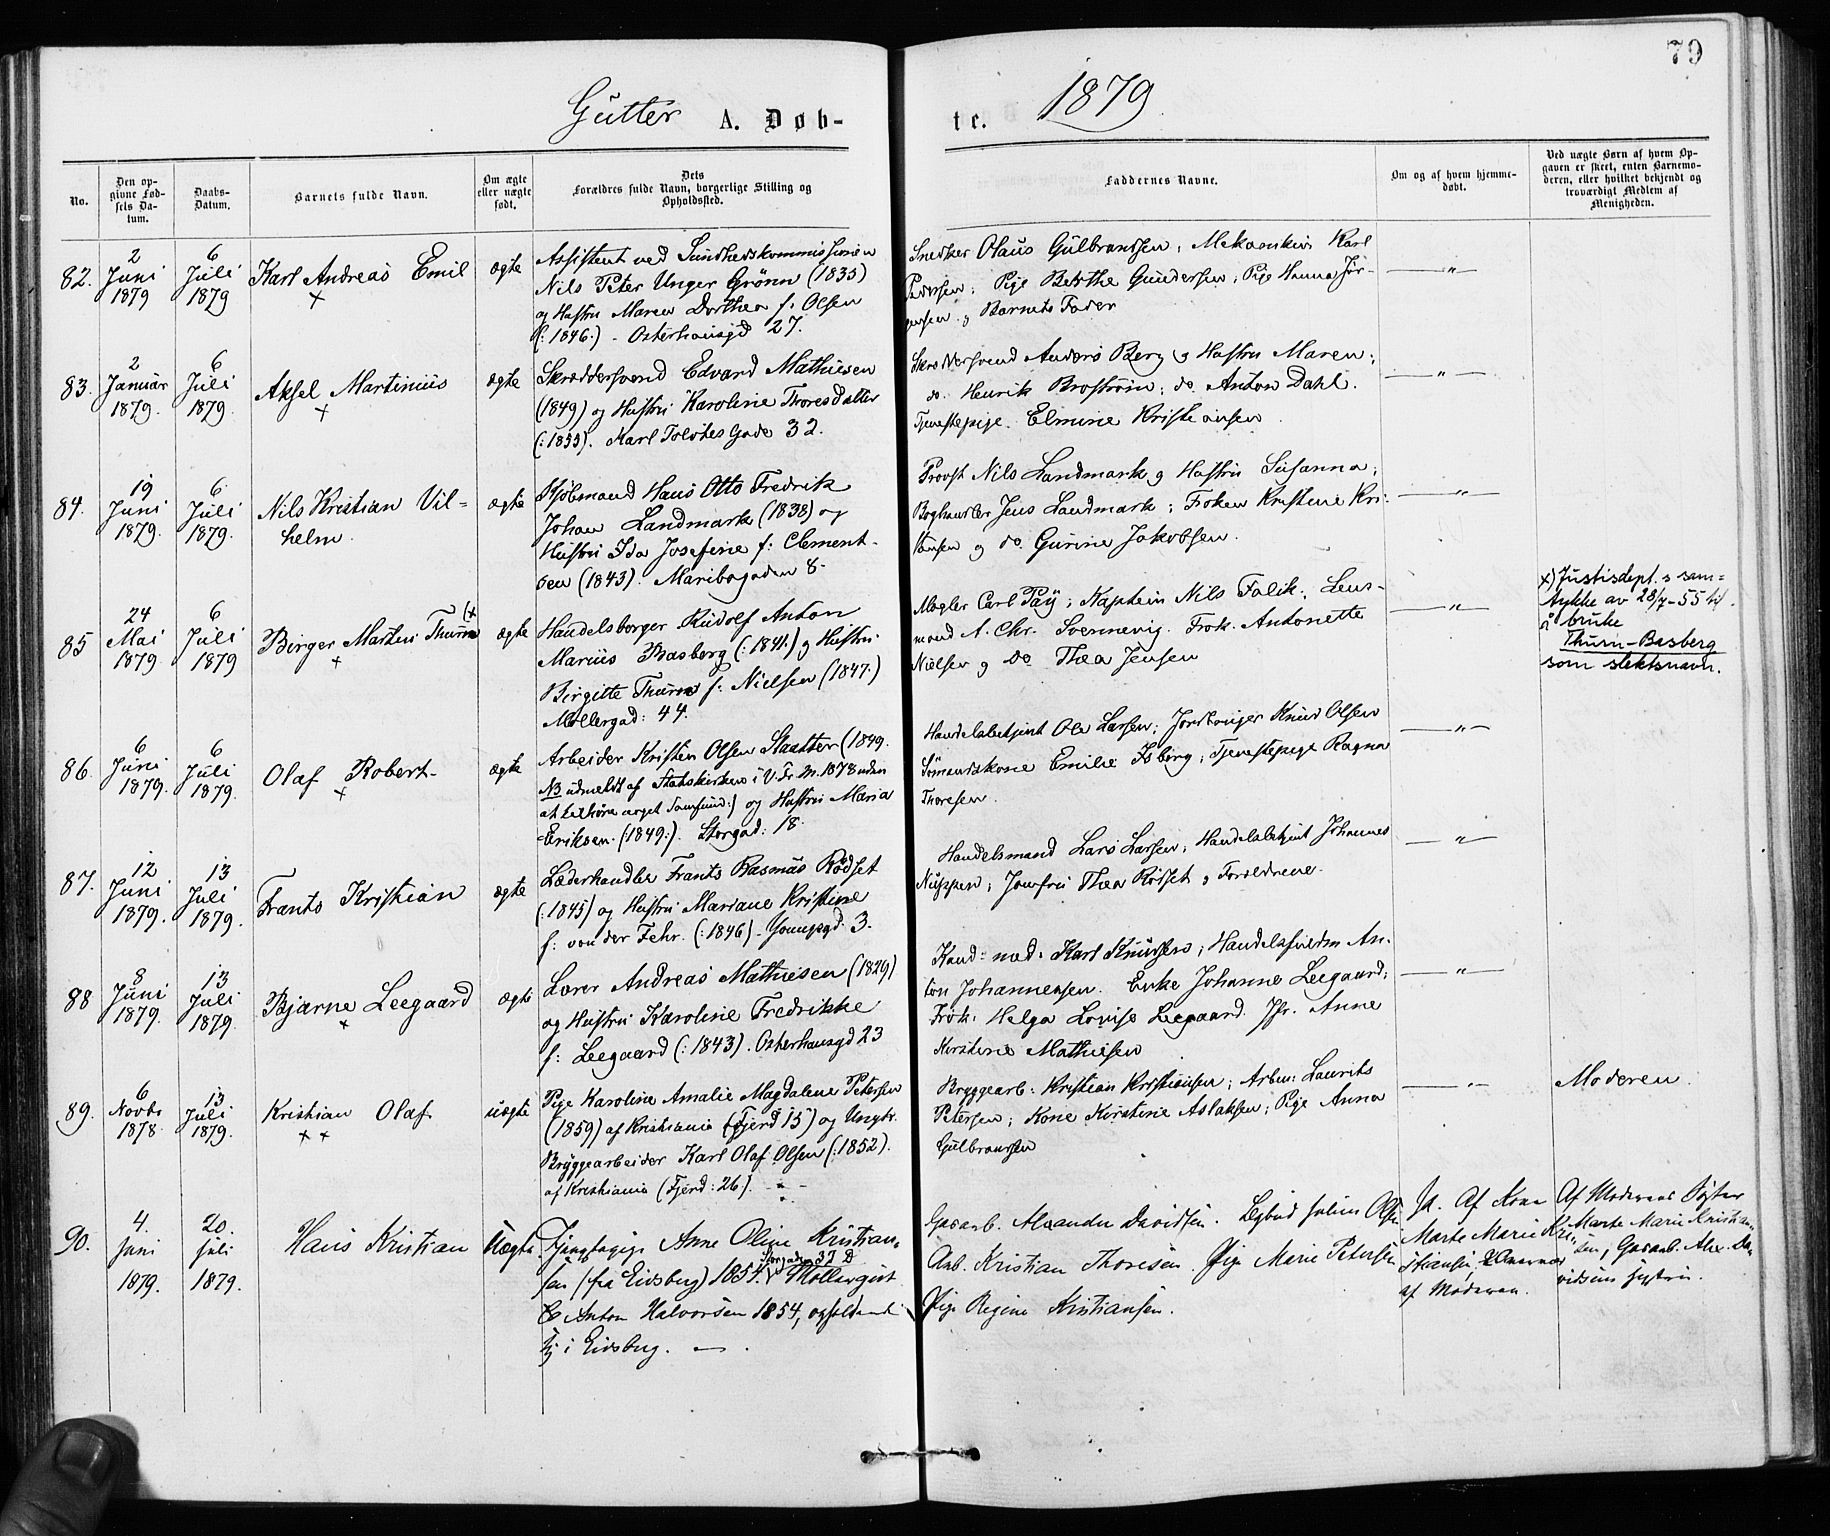 79
Gutter A. Døb-
te. 1879
No.
Den op-
givne Fød-
sels Da-
tum.
Daabs-
Datum.
Barnets fulde Navn.
Om ægte
eller uægte
født.
Dets
Forældres fulde Navn, borgerlige Stilling og
Opholdssted.
Faddernes Navne.
Om og af hvem hjemme-
døbt.
Ved uægte Børn af hvem Op-
gaven er skeet, enten Barnemo-
deren, eller hvilket bekjendt og
troværdigt Medlem af
Menigheden.
82.
2
Juni
1879
6
Juli
1879
Karl Andreas Emil
+
ægte
Assistent ved Sundhedskommissionen
Nils Peter Unger Grönn (1835)
og Hustru Maren Dorthea f. Olsen
(:1846:) - Osterhausgd 27.
Snedker Olaus Gulbrandsen; Mekanikus Karl
Pedersen; Pige Berthe Gundersen; Pige Hanna Jör-
gensen og Barnets Fader
—„—
83.
2
Januar
1879.
6
Juli
1879.
Aksel Martinius
+
ægte
Skræddersvend Edvard Mathiesen
(1849) og Hustru Karoline Thoresdatter
(:1853). Karl Tolvtes Gade 32.
Skræddersvend Anders Berg og Hustru Maren;
do. Henrik Broström; do. Anton Dahl.
Tjenestepige Elmine Kristiansen
—„—
84.
19
Juni
1879.
6
Juli
1879.
Nils Kristian Vil-
helm.
ægte
Kjöbmand Hans Otto Fredrik
Johan Landmark (1838) og
Hustru Ida Josefine f. Clement-
sen (1843). Maribogaden 8.
Provst Nils Landmark og Hustru Susanna;
Boghandler Jens Landmark; Fröken Kristine Kri-
stansen og do. Gurine Jakobsen.
—„—
85
24
Mai
1879
6
Juli
1879
Birger Martin Thurn (x
+
ægte
Handelsborger Rudolf Anton
Marius Basberg (:1841:) og Hustru
Birgitte Thurn f. Nielsen (1847.)
Möllergad: 44.
Mægler Carl Pay; Kaptein Nils Falik; Lens-
mand A. Chr. Svennevig. Frök. Antonette
Nielsen og do Thea Jensen
—„—
x) Justisdept.s sam-
tykke av 28/7-55 til
å bruke
Thurn-Basberg
som slektsnavn.
86.
6
Juni
1879.
6
Juli
1879.
Olaf Robert.
+
ægte
Arbeider Kristen Olsen Slaatter (1849.
NB udmeldt af Statskirken i V. Fr. M. 1878 uden
at tilhöre noget Samfund:) og Hustru Maria
Eriksen. (:1849:). Storgad: 18.
Handelsbetjent Ole Larsen; Knud Olsen
Sömandskone Emilie Isberg; Tjenestepige Ragna
Thoresen.
—„—
87.
12
Juni
1879.
13
Juli
1879.
Frants Kristian
ægte
Læderhandler Frants Rasmus Rödset
(:1845) og Hustru Mariane Kristine
f: von der Fehr. (:1846). Youngsgd. 3.
Handelsmand Lars Larsen; Handelsbetjent Johannes
Nuppen; Jomfru Thea Rödset og Forældrene.
—„—
88
8
Juni
1879.
13
Juli
1879.
Bjarne Leegaard
+
ægte
Lærer Andreas Mathiesen (1829)
og Hustru Karoline Fredrikke
f: Leegaard (:1843). Osterhausgd 23
Kand: med. Karl Knudsen; Handelsfuldm An-
ton Johannensen. Enke Johanne Leegaard;
Frök. Helga Lovise Leegaard. Jfr. Anne
Kirstine Mathiesen
—„—
89.
6
Novbr
1878.
13
Juli
1879.
Kristian Olaf.
+ +
uægte
Pige Karoline Amalie Magdalene Petersen
(1859) af Kristiania (Fjerd 15) og Ungkr.
Bryggearbeider Karl Olaf Olsen (:1852).
af Kristiania (Fjerd: 26).
Bryggearb. Kristian Kristiansen; Arbm: Laurits
Petersen; Kone Kirstine Aslaksen; Pige Anna
Gulbransen
—„—
Moderen.
90.
4.
juni
1879.
20.
juli
1879.
Hans Kristian
Uægte
Anne Oline Kristian-
sen (fra Eidsberg) 1854. Storgaden 32 D
Anton Halvorsen 1854,
i Eidsberg.
Gasarb. Alexander Davidsen. Julius Olsen
Arb. Kristian Thoresen. Pige Marie Petersen
Pige Regine Kristiansen.
Ja. Af Kone
Marte Marie Kri-
stiansen,
af Moderen.
Af Moderens Søster
Marte Marie Kristian-
sen, Gasarb. Alex. Da-
vidsens